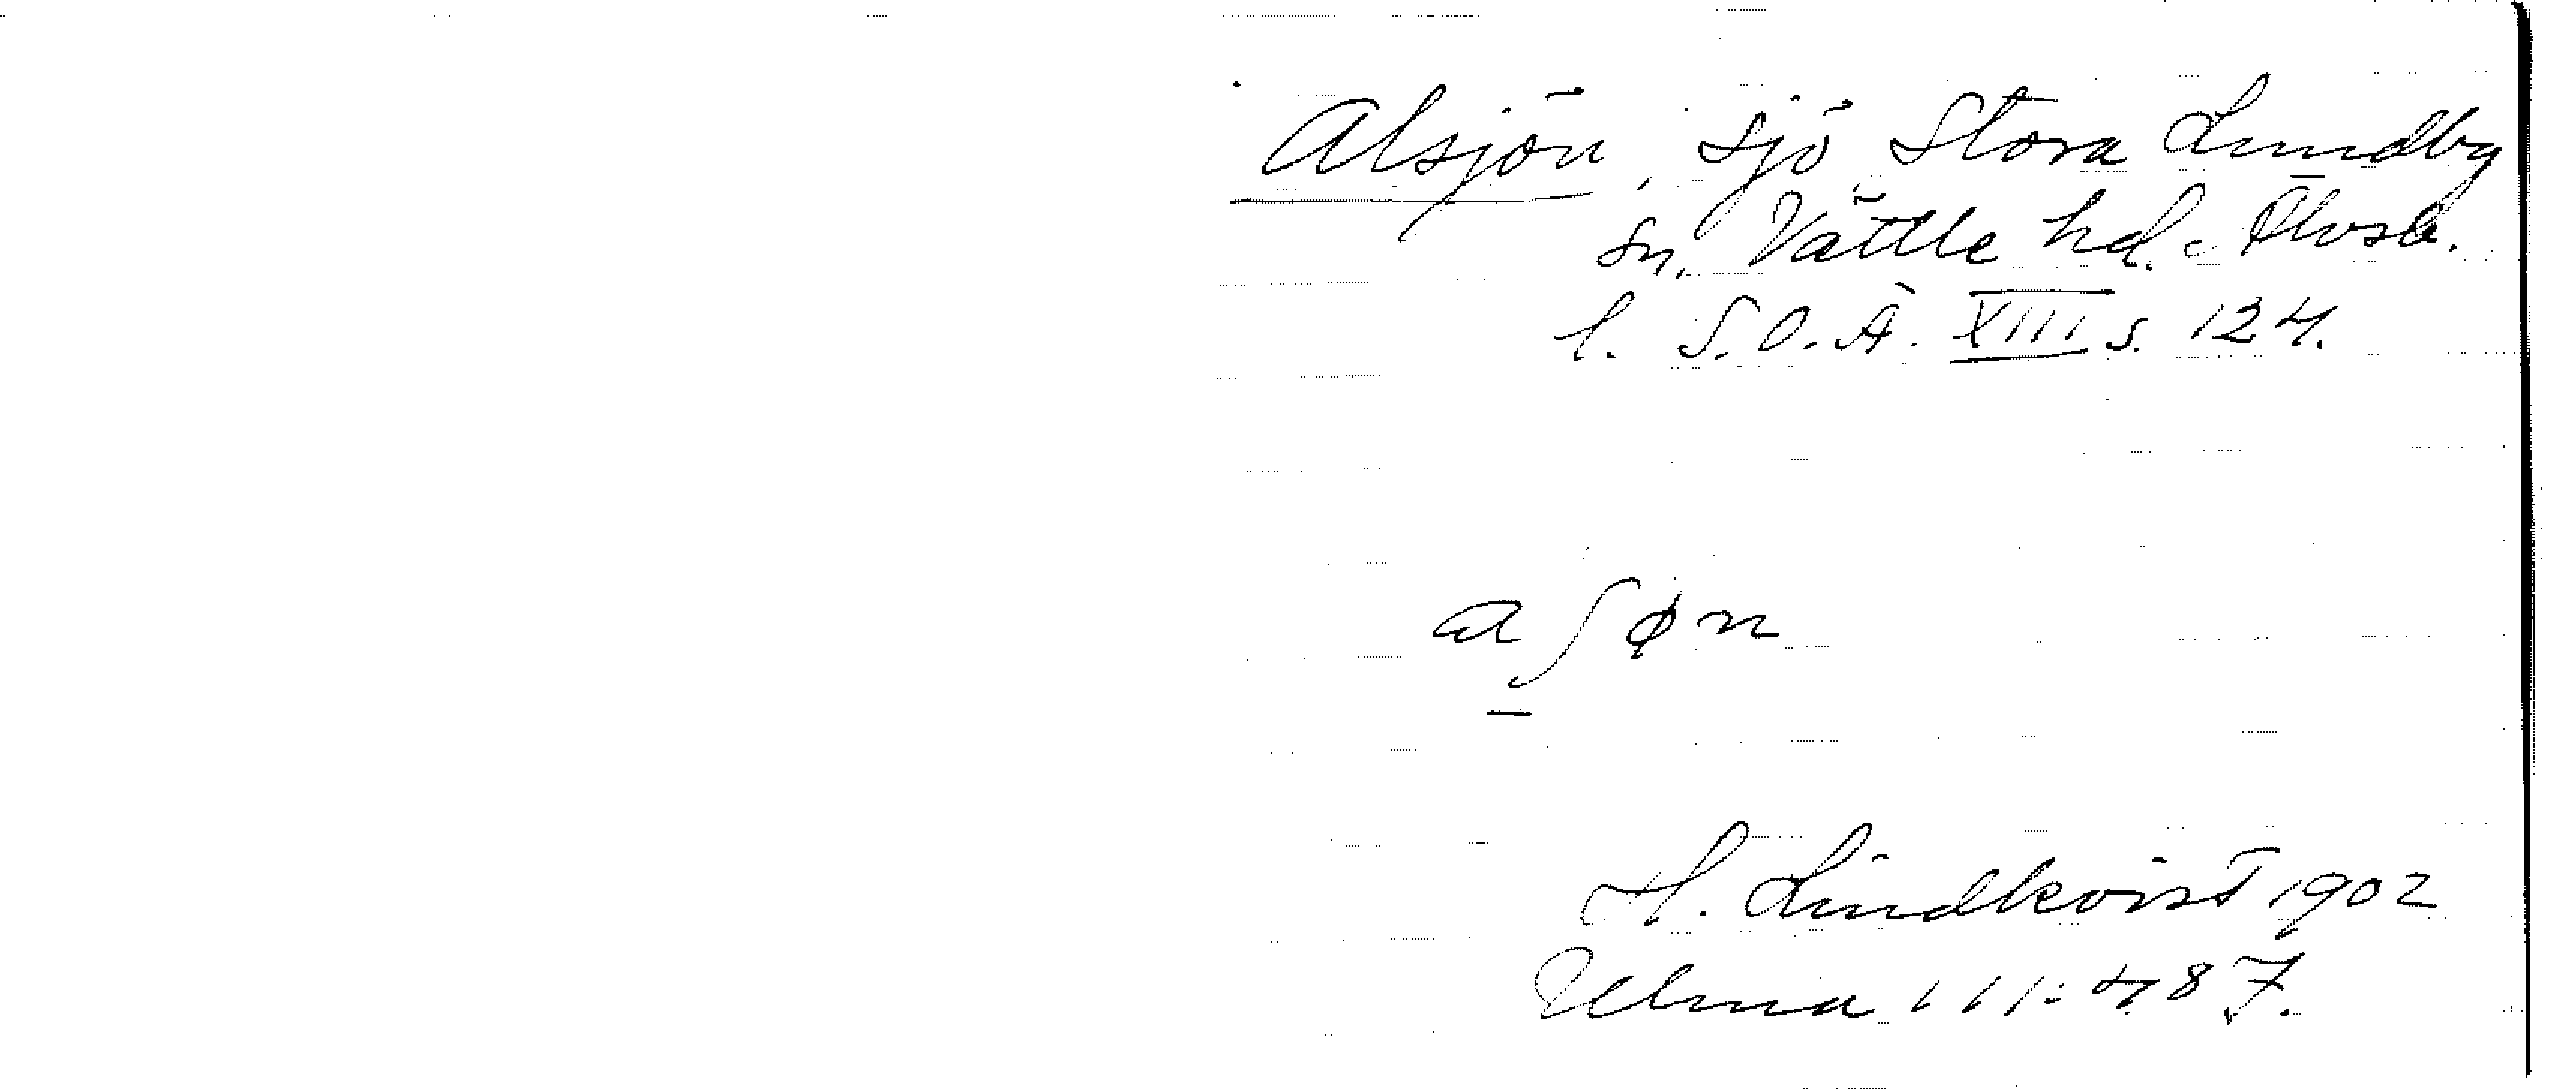 Alsjön, sjö, Stora Lundby
sn, Vättle hd. Älvsb.
l. S.O.Ä. XIII s. 124.
a ʃøn
H. Lindkvist 1902
Ulma 111:487.